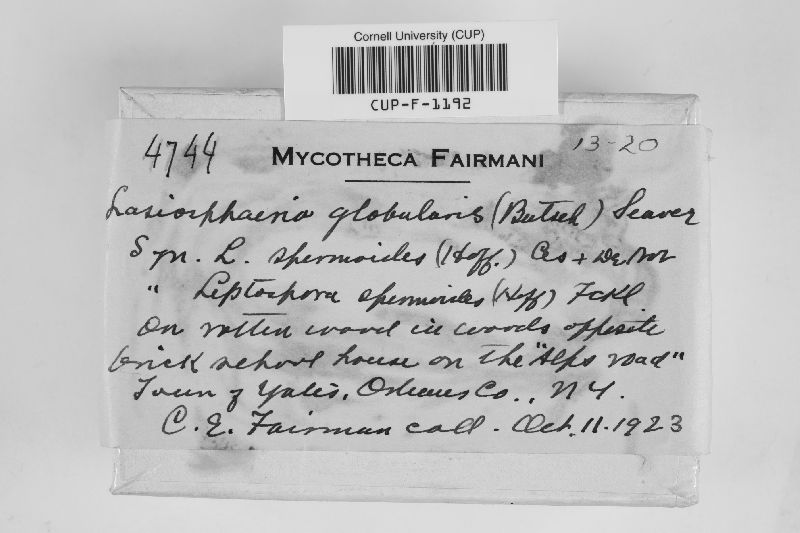 Cornell University (CUP)
CUP-F-1192
4744
MYCOTHECA FAIRMANI
13-20
Lasiosphaeria globularis (Batsch) Seaver
Syn. L. spermoides (Hoff.) Ces + De Not
" Leptospora spermoides (Hoff) Fckl
On rotten wood in woods opposite
brick school house on the "Alps road"
Town of Yates, Orleans Co., N.Y.
C. E. Fairman coll. Oct. 11. 1923